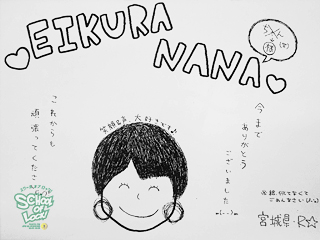 EIKURA
NANA
笑顔最高、大好きです♪
今まで
ありがとう
ございました
これからも
頑張ってくださ
SCHOOL
OF
LOCK!
※絵、似てなくて
ごめんなさい
宮城県・R☆